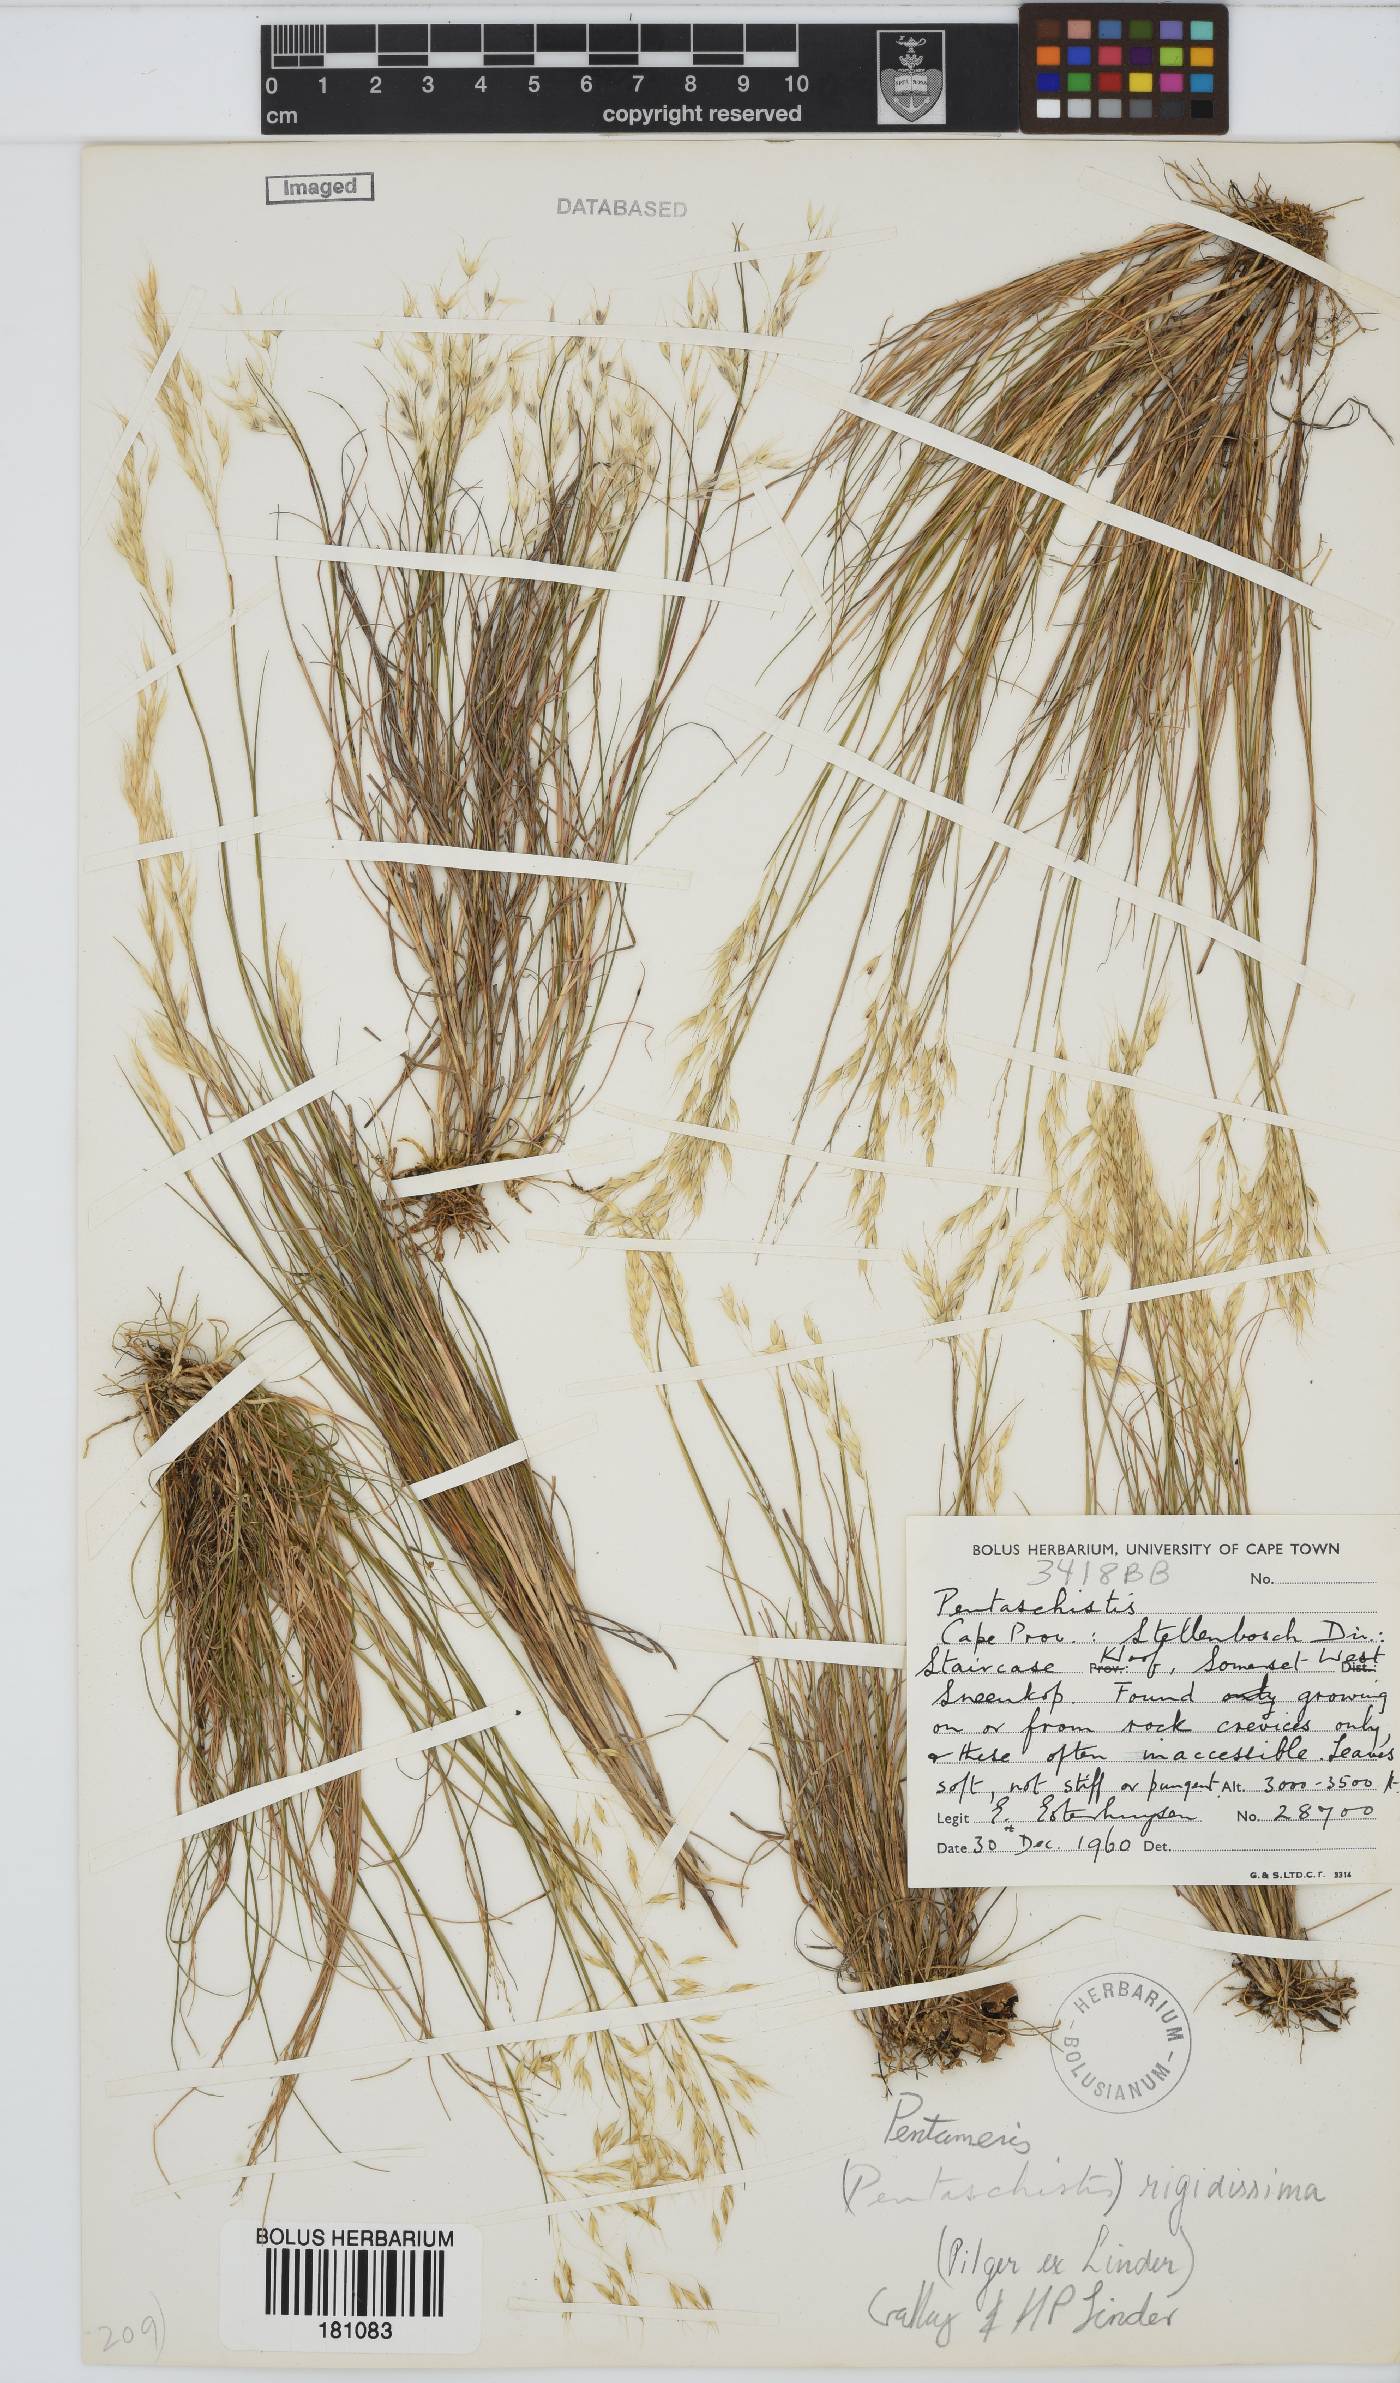 0 1 2 3 4 5 6 7 8 9 10
cm
copyright reserved
Imaged
DATABASED
BOLUS HERBARIUM, UNIVERSITY OF CAPE TOWN
3418BB No.
Pentaschistis
Cape Prov.: Stellenbosch Div.:
Staircase Prov. Kloof, Somerset West Dist.
Sneeukop. Found only growing
on or from rock crevices only,
& these often inaccessible. Leaves
soft, not stiff or pungent. Alt. 3000-3500 ft.
Legit E. Esterhuysen No. 28700
Date 30 Dec. 1960 Det.
G. & S. LTD. C.T. 3314
HERBARIUM
BOLUSIANUM
Pentameris
(Pentaschistis) rigidissima
(Pilger ex Linder)
Galley & HP Linder
BOLUS HERBARIUM
181083
209)